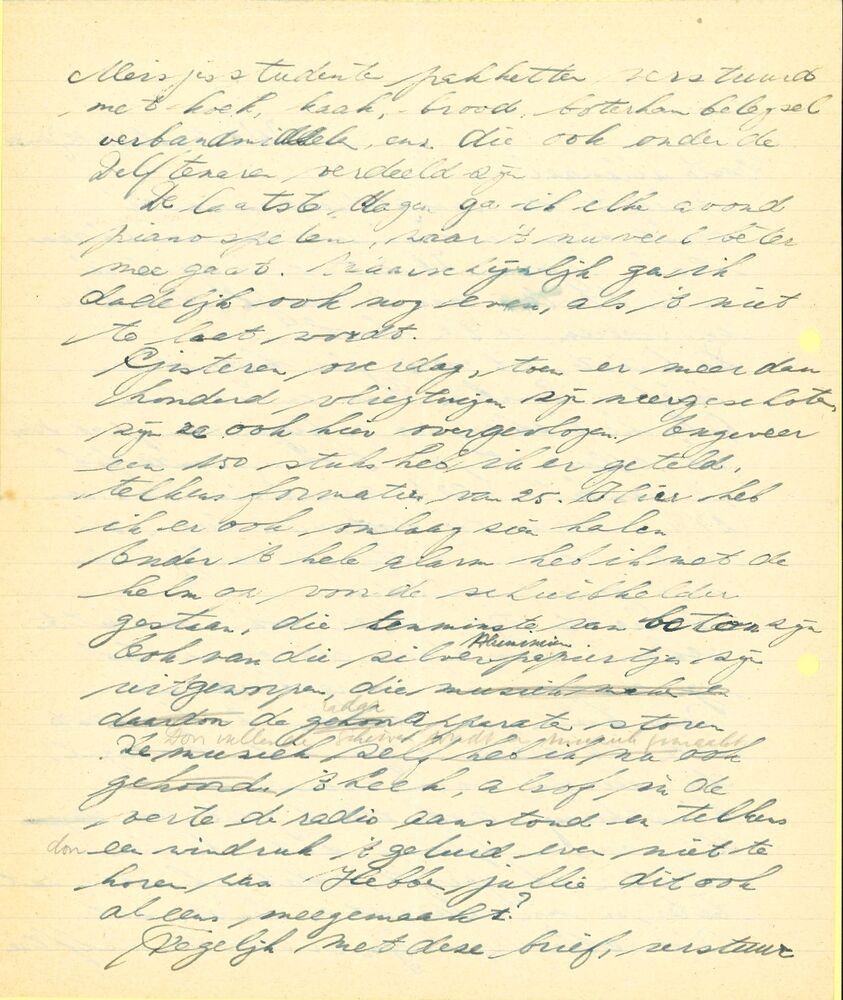 Meisjesstudente pakketten verstuurd
met koek, kaak, brood, boterhambelegsel
verbandmiddelen, enz. die ook onder de
Delftenaren verdeeld zijn
De laatste dagen ga ik elke avond
piano spelen, waar 't nu veel beter
mee gaat. Waarschijnlijk ga ik
dadelijk ook nog even, als 't niet
te laat wordt.
Gisteren overdag, toen er meer dan
honderd vliegtuigen zijn neergeschoten,
zijn ze ook hier overgevlogen. Ongeveer
een 150 stuks heb ik er geteld,
telkens formaties van 25. Hier heb
ik er ook omlaag zien halen
Onder 't hele alarm heb ik met de
helm op voor de schuilkelder
gestaan, die tenminste van beton zijn
Ook van die zilverpapiertjes zijn
Aluminium
uitgeworpen, die musiek maken en
daardoor de apparate storen
radar
Door vallende wordt musiek gemaakt
De musiek zelf heb ik nu ook
gehoord. 't Leek, alsof in de
verte de radio aanstond en telkens
door een windruk 't geluid even niet te
horen was. Hebben jullie dit ook
al eens meegemaakt?
Tegelijk met deze brief, verstuur